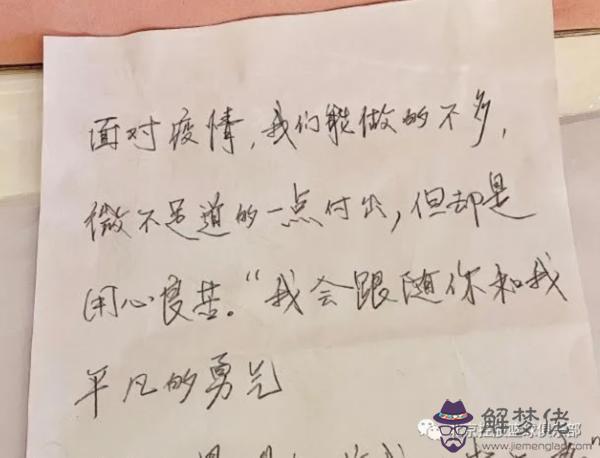 面对疫情,我们能做的不多,
微不足道的一点付出,但却是
用心良苦。“我会跟随你和我
平凡的勇气
解梦佬
www.jiemenglao.com